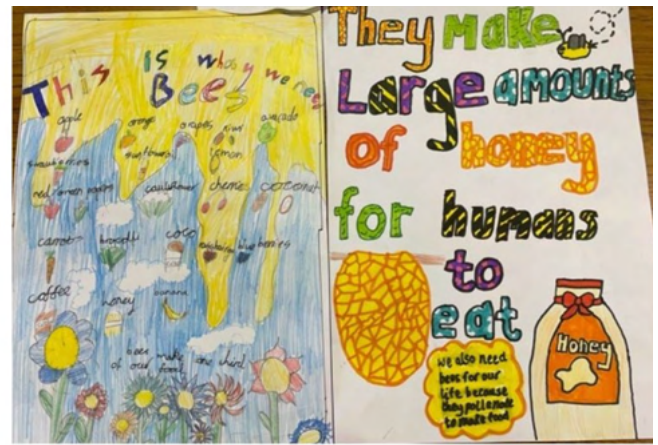 This IS Why we need
Bees
apple
orange
grapes
kiwi
avocado
strawberries
sunflowers
lemon
red
cauliflower
cherries
coconut
carrot
broccoli
coco
raspberries
blue berries
coffee
honey
banana
bees make one third
of our food
They make
Large amounts
of honey
for humans
to
eat
Honey
We also need
bees for our
life because
they pollinate
to make food